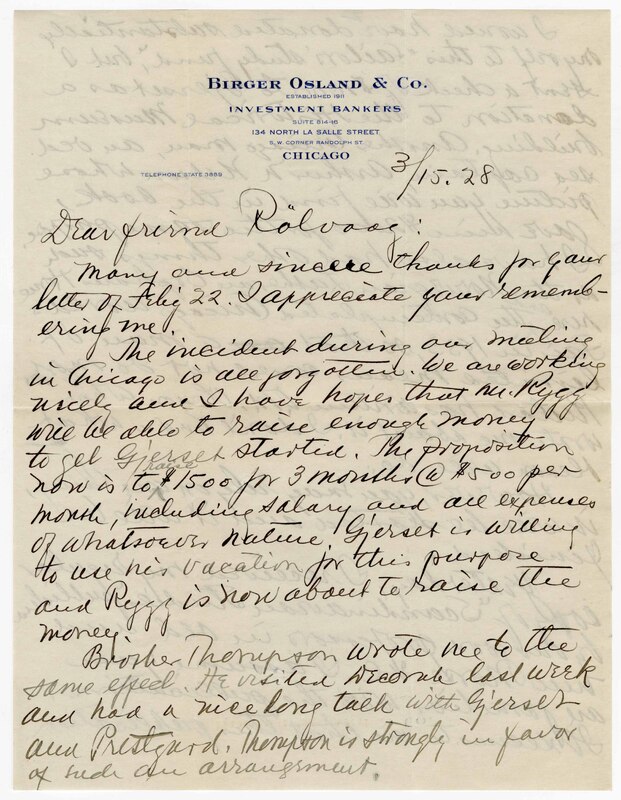 BIRGER OSLAND & CO.
ESTABLISHED 1911
INVESTMENT BANKERS
SUITE 814-16
134 NORTH LA SALLE STREET
S. W. CORNER RANDOLPH ST.
CHICAGO
TELEPHONE STATE 3889
3/15. 28
Dear friend Rölvaag:
Many and sincere thanks for your
letter of Feby 22. I appreciate your rememb-
ering me.
The incident during our meeting
in Chicago is all forgotten. We are working
nicely and I have hopes that Mr. Rygg
will be able to raise enough money
to get Gjerset started. The proposition
now is to raise $1500 for 3 months @ $500 per
month, including salary and all expenses
of whatsoever nature. Gjerset is willing
to use his vacation for this purpose
and Rygg is now about to raise the
money.
Brother Thompson wrote me to the
same effect. He visited Decorah last week
and had a nice long talk with Gjerset
and Prestgard. Thompson is strongly in favor
of such an arrangement.